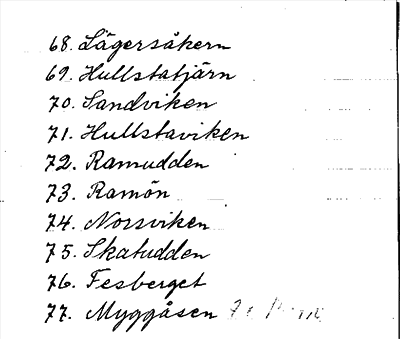 68. Lägersåkern
69. Hullstatjärn
70. Sandviken
71. Hullstaviken
72. Ramudden
73. Ramön
74. Norsviken
75. Skatudden
76. Fesberget
77. Myggåsen